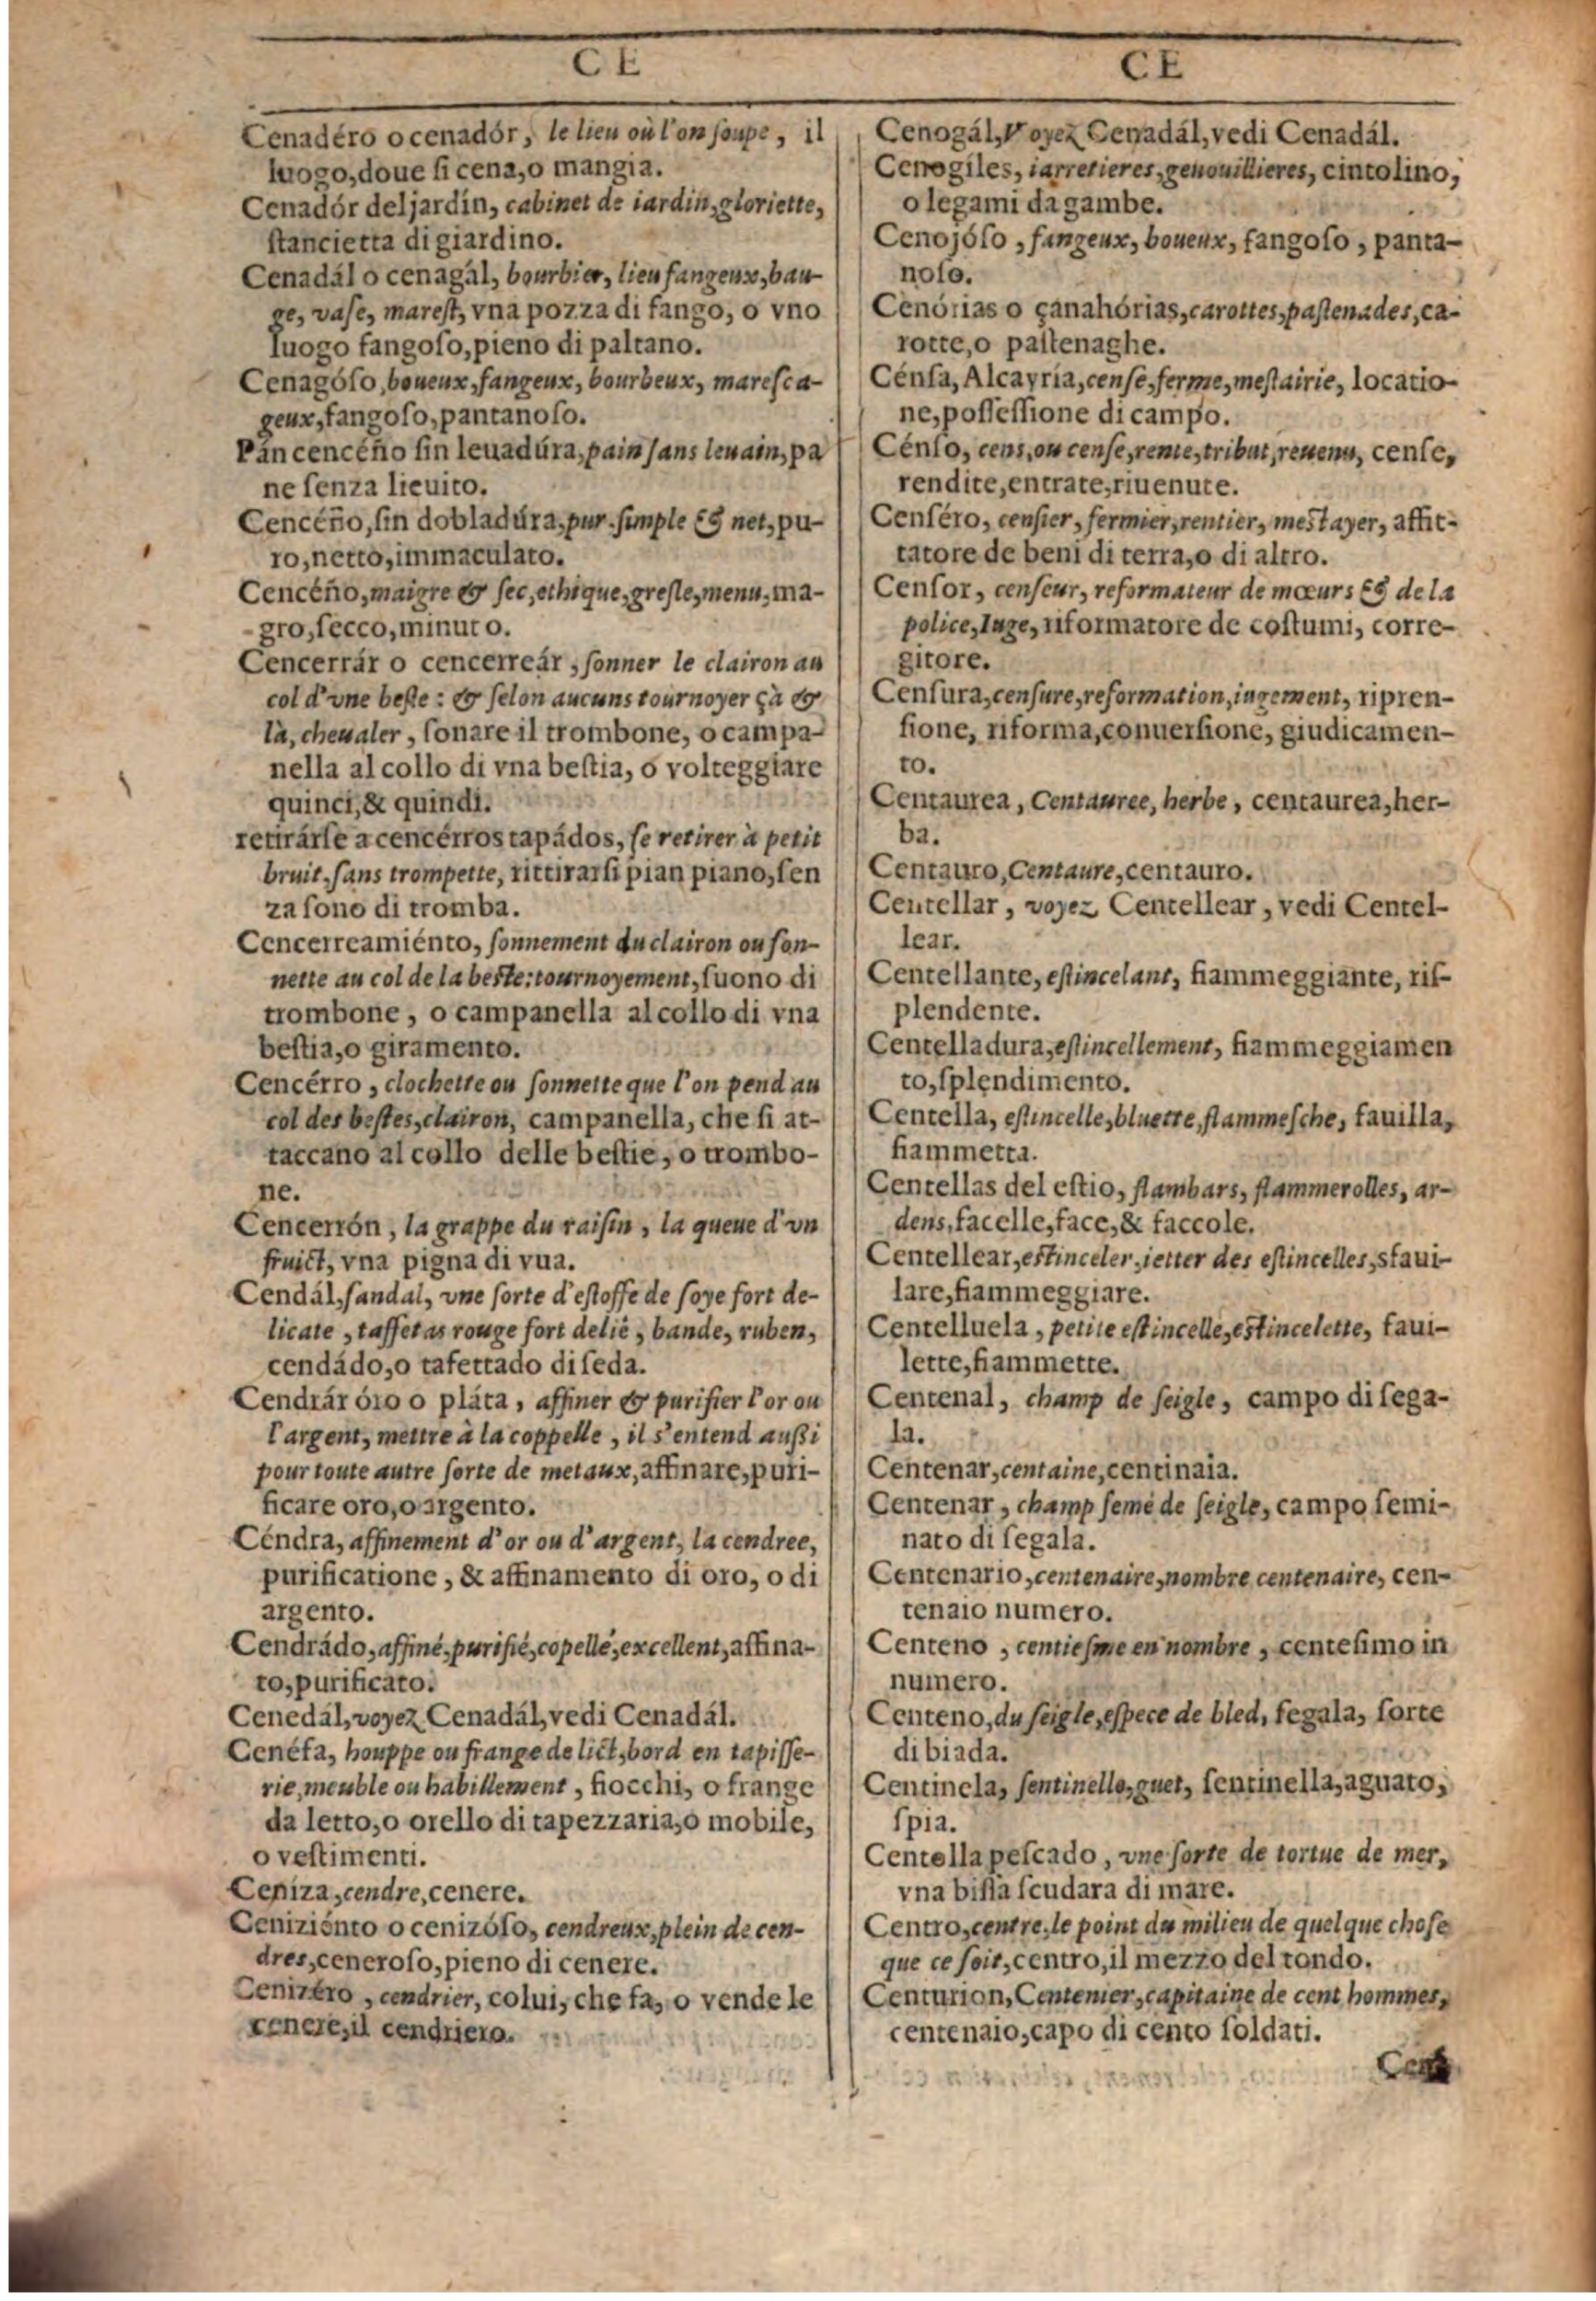 C E
Cenadéro o cenadór, le lieu où l'on ſoupe, il
luogo, doue ſi cena, o mangia.
Cenadór del jardín, cabinet de iardin, gloriette,
ſtancietta di giardino.
Cenadál o cenagál, bourbier, lieu fangeux, bau-
ge, vaſe, mareſt, vna pozza di fango, o vno
luogo fangoſo, pieno di paltano.
Cenagóſo, boueux, fangeux, bourbeux, mareſca-
geux, fangoſo, pantanoſo.
Pán cencéño ſin leuadúra, pain ſans leuain, pa
ne ſenza lieuito.
Cencéño, ſin dobladúra, pur. ſimple & net, pu-
ro, netto, immaculato.
Cencéño, maigre & ſec, ethique, greſle, menu, ma-
gro, ſecco, minuto.
Cencerrár o cencerreár, ſonner le clairon au
col d'vne beſte : & ſelon aucuns tournoyer çà &
là, cheualer, ſonare il trombone, o campa-
nella al collo di vna beſtia, o volteggiare
quinci, & quindi.
retirárſe a cencérros tapádos, ſe retirer à petit
bruit. ſans trompette, rittirarſi pian piano, ſen
za ſono di tromba.
Cencerreamiénto, ſonnement du clairon ou ſon-
nette au col de la beſte: tournoyement, ſuono di
trombone, o campanella al collo di vna
beſtia, o giramento.
Cencérro, clochette ou ſonnette que l'on pend au
col des beſtes, clairon, campanella, che ſi at-
taccano al collo delle beſtie, o trombo-
ne.
Cencerrón, la grappe du raiſin, la queue d'vn
fruict, vna pigna di vua.
Cendál, ſandal, vne ſorte d'eſtoffe de ſoye fort de-
licate, taffetas rouge fort delié, bande, ruben,
cendádo, o tafettado di ſeda.
Cendrár óro o pláta, affiner & purifier l'or ou
l'argent, mettre à la coppelle, il s'entend auſſi
pour toute autre ſorte de metaux, affinare, puri-
ficare oro, o argento.
Céndra, affinement d'or ou d'argent, la cendree,
purificatione, & affinamento di oro, o di
argento.
Cendrádo, affiné, purifié, copellé, excellent, affina-
to, purificato.
Cenedál, voyez Cenadál, vedi Cenadál.
Cenéfa, houppe ou frange de lict, bord en tapiſſe-
rie, meuble ou habillement, fiocchi, o frange
da letto, o orello di tapezzaria, o mobile,
o veſtimenti.
Ceníza, cendre, cenere.
Ceniziénto o cenizóſo, cendreux, plein de cen-
dres, ceneroſo, pieno di cenere.
Cenizéro, cendrier, colui, che fa, o vende le
cenere, il cendriero.
C E
Cenogál, Voyez Cenadál, vedi Cenadál.
Cenogíles, iarretieres, genouillieres, cintolino,
o legami da gambe.
Cenojóſo, fangeux, boueux, fangoſo, panta-
noſo.
Cenórias o çanahórias, carottes, paſtenades, ca-
rotte, o paſtenaghe.
Cénſa, Alcayría, cenſe, ferme, meſtairie, locatio-
ne, poſſeſſione di campo.
Cénſo, cens, ou cenſe, rente, tribut, reuenu, cenſe,
rendite, entrate, riuenute.
Cenſéro, cenſier, fermier, rentier, meſtayer, affit-
tatore de beni di terra, o di altro.
Cenſor, cenſeur, reformateur de mœurs & de la
police, Iuge, riformatore de coſtumi, corre-
gitore.
Cenſura, cenſure, reformation, iugement, ripren-
ſione, riforma, conuerſione, giudicamen-
to.
Centaurea, Centauree, herbe, centaurea, her-
ba.
Centauro, Centaure, centauro.
Centellar, voyez Centellear, vedi Centel-
lear.
Centellante, eſtincelant, fiammeggiante, riſ-
plendente.
Centelladura, eſtincellement, fiammeggiamen
to, ſplendimento.
Centella, eſtincelle, bluette, flammeſche, fauilla,
fiammetta.
Centellas del eſtio, flambars, flammerolles, ar-
dens, facelle, face, & faccole.
Centellear, eſtinceler, ietter des eſtincelles, sfaui-
lare, fiammeggiare.
Centelluela, petite eſtincelle, eſtincelette, faui-
lette, fiammette.
Centenal, champ de ſeigle, campo di ſega-
la.
Centenar, centaine, centinaia.
Centenar, champ ſemé de ſeigle, campo ſemi-
nato di ſegala.
Centenario, centenaire, nombre centenaire, cen-
tenaio numero.
Centeno, centieſme en nombre, centeſimo in
numero.
Centeno, du ſeigle, eſpece de bled, ſegala, ſorte
di biada.
Centinela, ſentinelle, guet, ſentinella, aguato,
ſpia.
Centella peſcado, vne ſorte de tortue de mer,
vna biſſa ſcudara di mare.
Centro, centre, le point du milieu de quelque choſe
que ce ſoit, centro, il mezzo del tondo.
Centurion, Centenier, capitaine de cent hommes,
centenaio, capo di cento ſoldati.